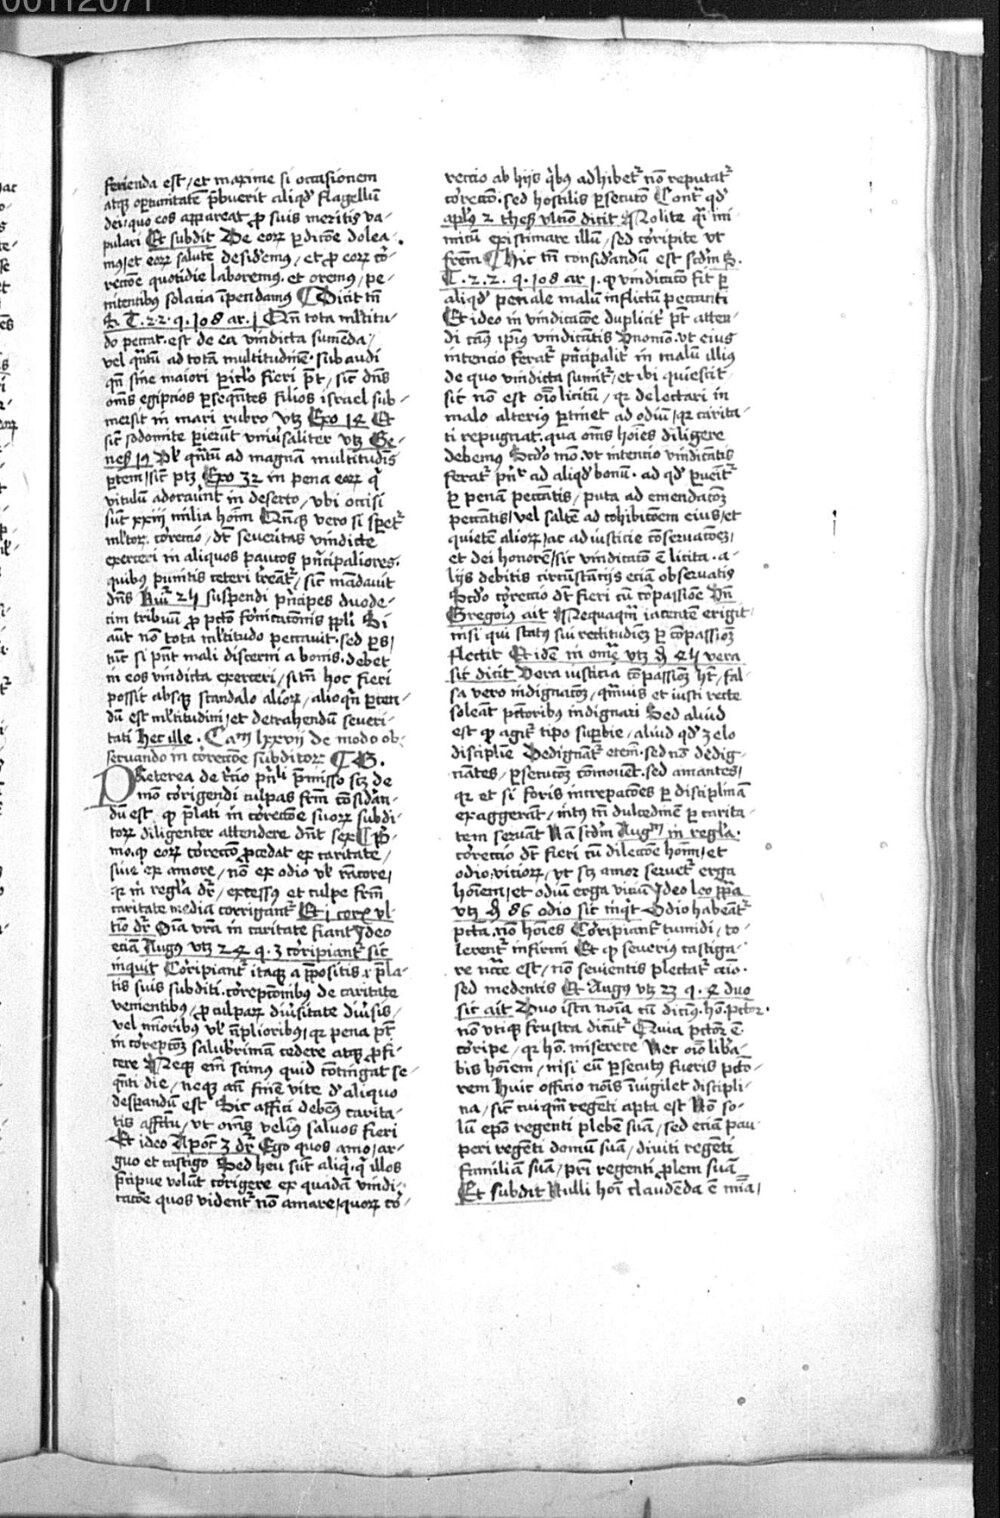 00112071
ferienda est / et maxime si occasionem
atqꝫ oportunitatē p̄buerit aliqd' flagellum
dei / quo eos appareat ꝓ suis meritis va-
pulari Et subdit De eorꝝ ꝑdicōne dolea-
mꝰ / et eorꝝ salutē desid'emꝰ / et ꝓ eorꝝ cor-
rectōne quotidie laboremꝰ / et oremꝰ / pe-
nitentibꝰ solatia īpendamꝰ Dicit tn̄
S. T. 22. q. 108 ar. 1 Qn̄ tota ml'titu-
do peccat. est de ea vindicta sumēda /
vel qn̄tū ad totā multitudinē. subaudi
qn̄ sine maiori pic'lo fieri pt̄ / sic' dn̄s
om̄s egiptios ꝑseqn̄tes filios israel sub-
mersit in mari rubro vtꝫ Exo 14 Et
sic' sodomite ꝑierūt vniu'saliter vtꝫ Ge-
nes' 19 Vl' qn̄tū ad magnā multitudīs
ꝑtem / sic' ptꝫ Exo 32 in pena eorꝝ q'
vitulū adorau'nt in deserto / vbi occisi
sūt xxiii milia hom̄ Qn̄qꝫ vero si sꝑet'
ml'torꝝ correctio / dt̄ seueritas vindicte
exerceri in aliquos paucos pn̄cipaliores.
quibꝰ punitis ceteri t'reāt' / sic' mādauit
dn̄s Nu' 25 suspendi pn̄cipes duode-
cim tribuū ꝓ pctō fornicatōnis ppl'i Si
aūt nō tota ml'titudo peccauit. sed ꝑs /
tūc si pn̄t mali discerni a bonis. debet
in eos vindicta exerceri / si tn̄ hoc fieri
possit absqꝫ scandalo aliorꝝ / alioqn̄ ꝑcen-
dū est ml'titudini / et detrahendū seueri-
tati Hec ille. Cam lxxvii de modo ob-
seruando in correctōne subditorꝝ
PReterea de t'cio pn̄li p̄misso scꝫ de
mō corrigendi culpas frm̄ cōsid'an-
dū est ꝙ p̄lati in correctōne suorꝝ subdi-
torꝝ diligenter attendere dn̄t sex P'-
mo. ꝙ eorꝝ correctō ꝓcedat ex caritate /
siue ex amore / nō ex odio vl' rācore /
qꝛ in regl'a dr̄ / excessus et culpe frm̄
caritate media corrigant' Et 1 corꝝ vl-
tīo dr̄ Oīa vr̄a in caritate fiant Ideo
eciā Augꝰ vtꝫ 24 q. 3 corripiant' sic'
inquit Corripiant' itaqꝫ a p̄positis ⁊ p̄la-
tis suis subditi. correptōnibꝰ de caritate
venientibꝰ / ꝓ culparꝝ diu'sitate diu'sis /
vel minoribꝰ vl' āplioribꝰ / qꝛ pena pt̄
in correptōꝫ salub'rimā cedere atqꝫ ꝓfi-
cere Neqꝫ em̄ scimus quid cōtingat se-
qn̄ti die / neqꝫ an̄ finē vite d' aliquo
desꝑandū est Sic affici debem' carita-
tis affc̄tu / vt om̄s velim' saluos fieri
Et ideo Apoc' 3 dr̄ Ego quos amo / ar-
guo et castigo Sed heu sūt aliq' q' illos
p̄cipue volūt corrigere ex quadā vindi-
catōne quos vident' nō amare / quorꝝ cor-
rectio ab hijs q'bꝰ adhibet' nō reputat'
correctō. sed hostilis ꝑsecutō Cont' qd'
apl'us 2 thes' vltīo dicit Nolite q'i ini-
micū existimare illū / sed corripite vt
frēm Hic tn̄ considandū est scdm S.
T. 2. 2. q. 108 ar 1. ꝙ vindicatō fit ꝑ
aliqd' penale malū inflictū peccanti
Et ideo in vindicatōe duplicit' pt̄ atten-
di cāus ipīus vindicātis Vnomō. vt eiꝰ
intencio ferat' pn̄cipalit' in malū illius
de quo vindicta sumit' / et ibi quiescit.
sic' nō est oīo licitū / qꝛ delectari in
malo alterius ꝑtinet ad odiū / qꝛ carita-
ti repugnat. qua om̄s hoīes diligere
debemꝰ Scd'o mō. vt intentio vindicātis
ferat' pn̄r ad aliqd' bonū. ad qd' ꝑuēit'
ꝑ penā peccātis / puta ad emendacōꝫ
peccātis / vel saltē ad cohibicōem eius / et
quietē aliorꝝ / ac ad iusticie cōseruacōeꝫ /
et dei honorē / sic' vindicatō ē licita. a-
lijs debitis circūstancijs eciā obseruatis
Scd'o correctio dt̄ fieri cū cōpassiōe Vn̄
Gregoiꝰ ait Nequaqm̄ iacentē erigit.
nisi qui statꝰ sui rectitudieꝫ ꝑ cōpassioꝫ
flectit Et idē in om̄' vtꝫ d' 45 vera
sic dicit Vera iusticia cōpassioꝫ ht̄ / fal-
sa vero indignacōꝫ / qm̄uis et iusti recte
soleāt pctōribus indignari Sed aliud
est ꝙ agit' tipo suꝑbie / aliud qd' zelo
disciplīe Dedignāt' etem̄. sed nō dedig-
nātes / ꝑsecutōꝫ cōmouēt. sed amantes /
qꝛ et si foris increpacōes ꝑ disciplinā
exaggerāt / intꝰ tn̄ dulcedinē ꝑ carita-
tem seruāt Nā scd'm Augm̄ in regl'a.
correctio dt̄ fieri cū dilectōe hom̄ / et
odio viciorꝝ / vt scꝫ amor seruet' erga
hoīem / et odiū erga viciū Ideo leo ppa
vtꝫ d' 86 odio sic inq't Odio habeāt'
pctā. nō hoīes Corripiant' tumidi / to-
lerent' infirmi Et ꝙ seuerius castiga-
re nccē est / nō seuientis plectat' aīo.
sed medentis Et Augꝰ vtꝫ 23 q. 4 duo
sic ait Duo ista noīa cū dicimꝰ. hō. pctor.
nō vtiqꝫ frustra dicūt' Quia pctōr ē
corripe / qꝛ hō. miserere Nec oīo lib'a-
bis hoīem / nisi eū ꝑsecutꝰ fueris pctō-
rem Huic officio nōis īuigilet discipli-
na / sic' cuiqm̄ regēti apta est Nō so-
lū epō regenti plebē suā / sed eciā pau-
peri regēti domū suā / diuiti regēti
familiā suā / pr̄i regenti ꝓlem suā
Et subdit Nulli hoī claudēda ē mīa /